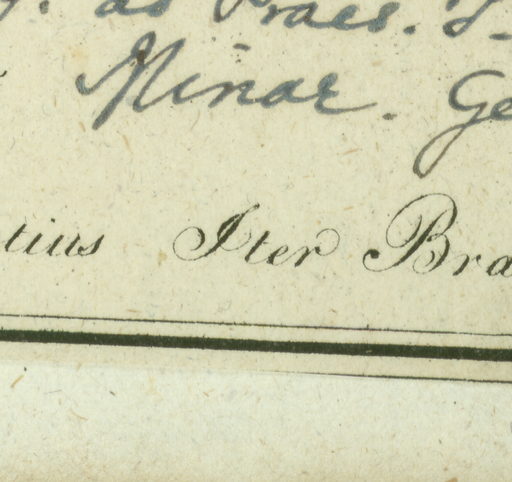 as Praes.
Minar. Ge
tius Iter Bra